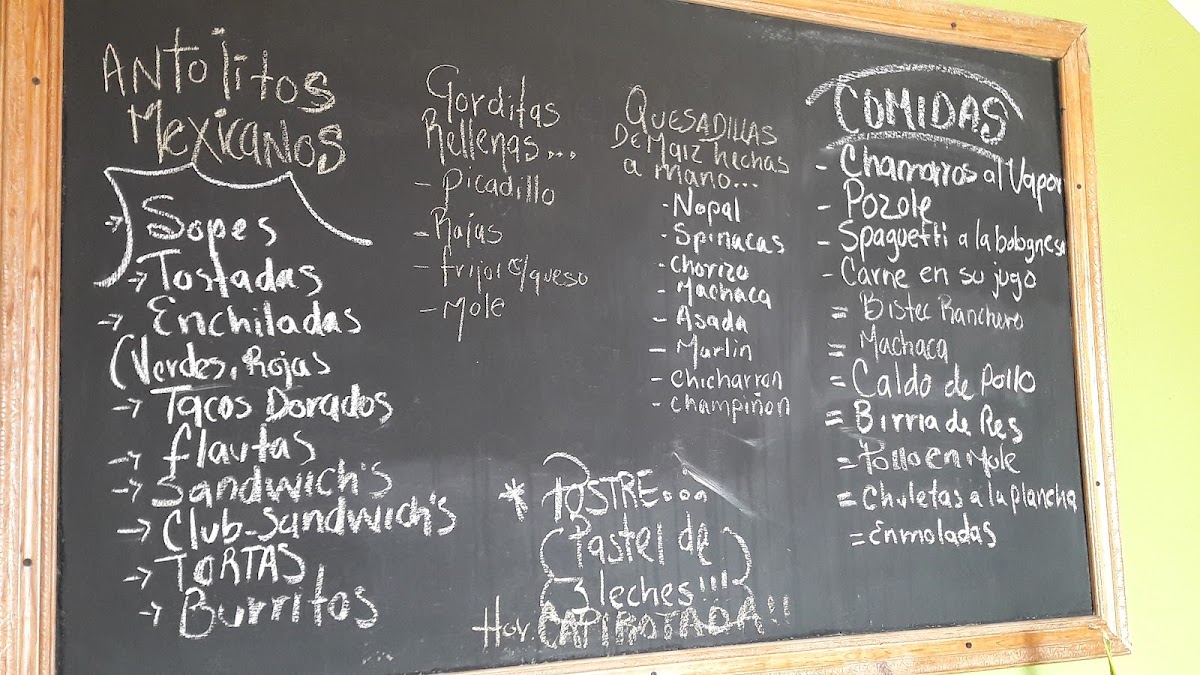 ANTOJITOS
MEXICANOS
→ Sopes
→ Tostadas
→ Enchiladas
(Verdes, Rojas
→ Tacos Dorados
→ flautas
→ Sandwich's
→ Club-Sandwich's
→ TORTAS
→ Burritos
Gorditas
Rellenas...
- Picadillo
- Rajas
- frijol c/queso
- Mole
QUESADILLAS
De Maiz hechas
a mano...
- Nopal
- Spinacas
- Chorizo
- Machaca
- Asada
- Marlin
- chicharron
- champiñon
* POSTRE...
Pastel de
3 leches!!!
Hoy. CAPIROTADA!!
COMIDAS
- Chamorros al Vapor
- Pozole
- Spaguetti a la bolognesa
- Carne en su jugo
= Bistec Ranchero
= Machaca
= Caldo de Pollo
= Birria de Res
= Pollo en Mole
= Chuletas a la plancha
= Enmoladas